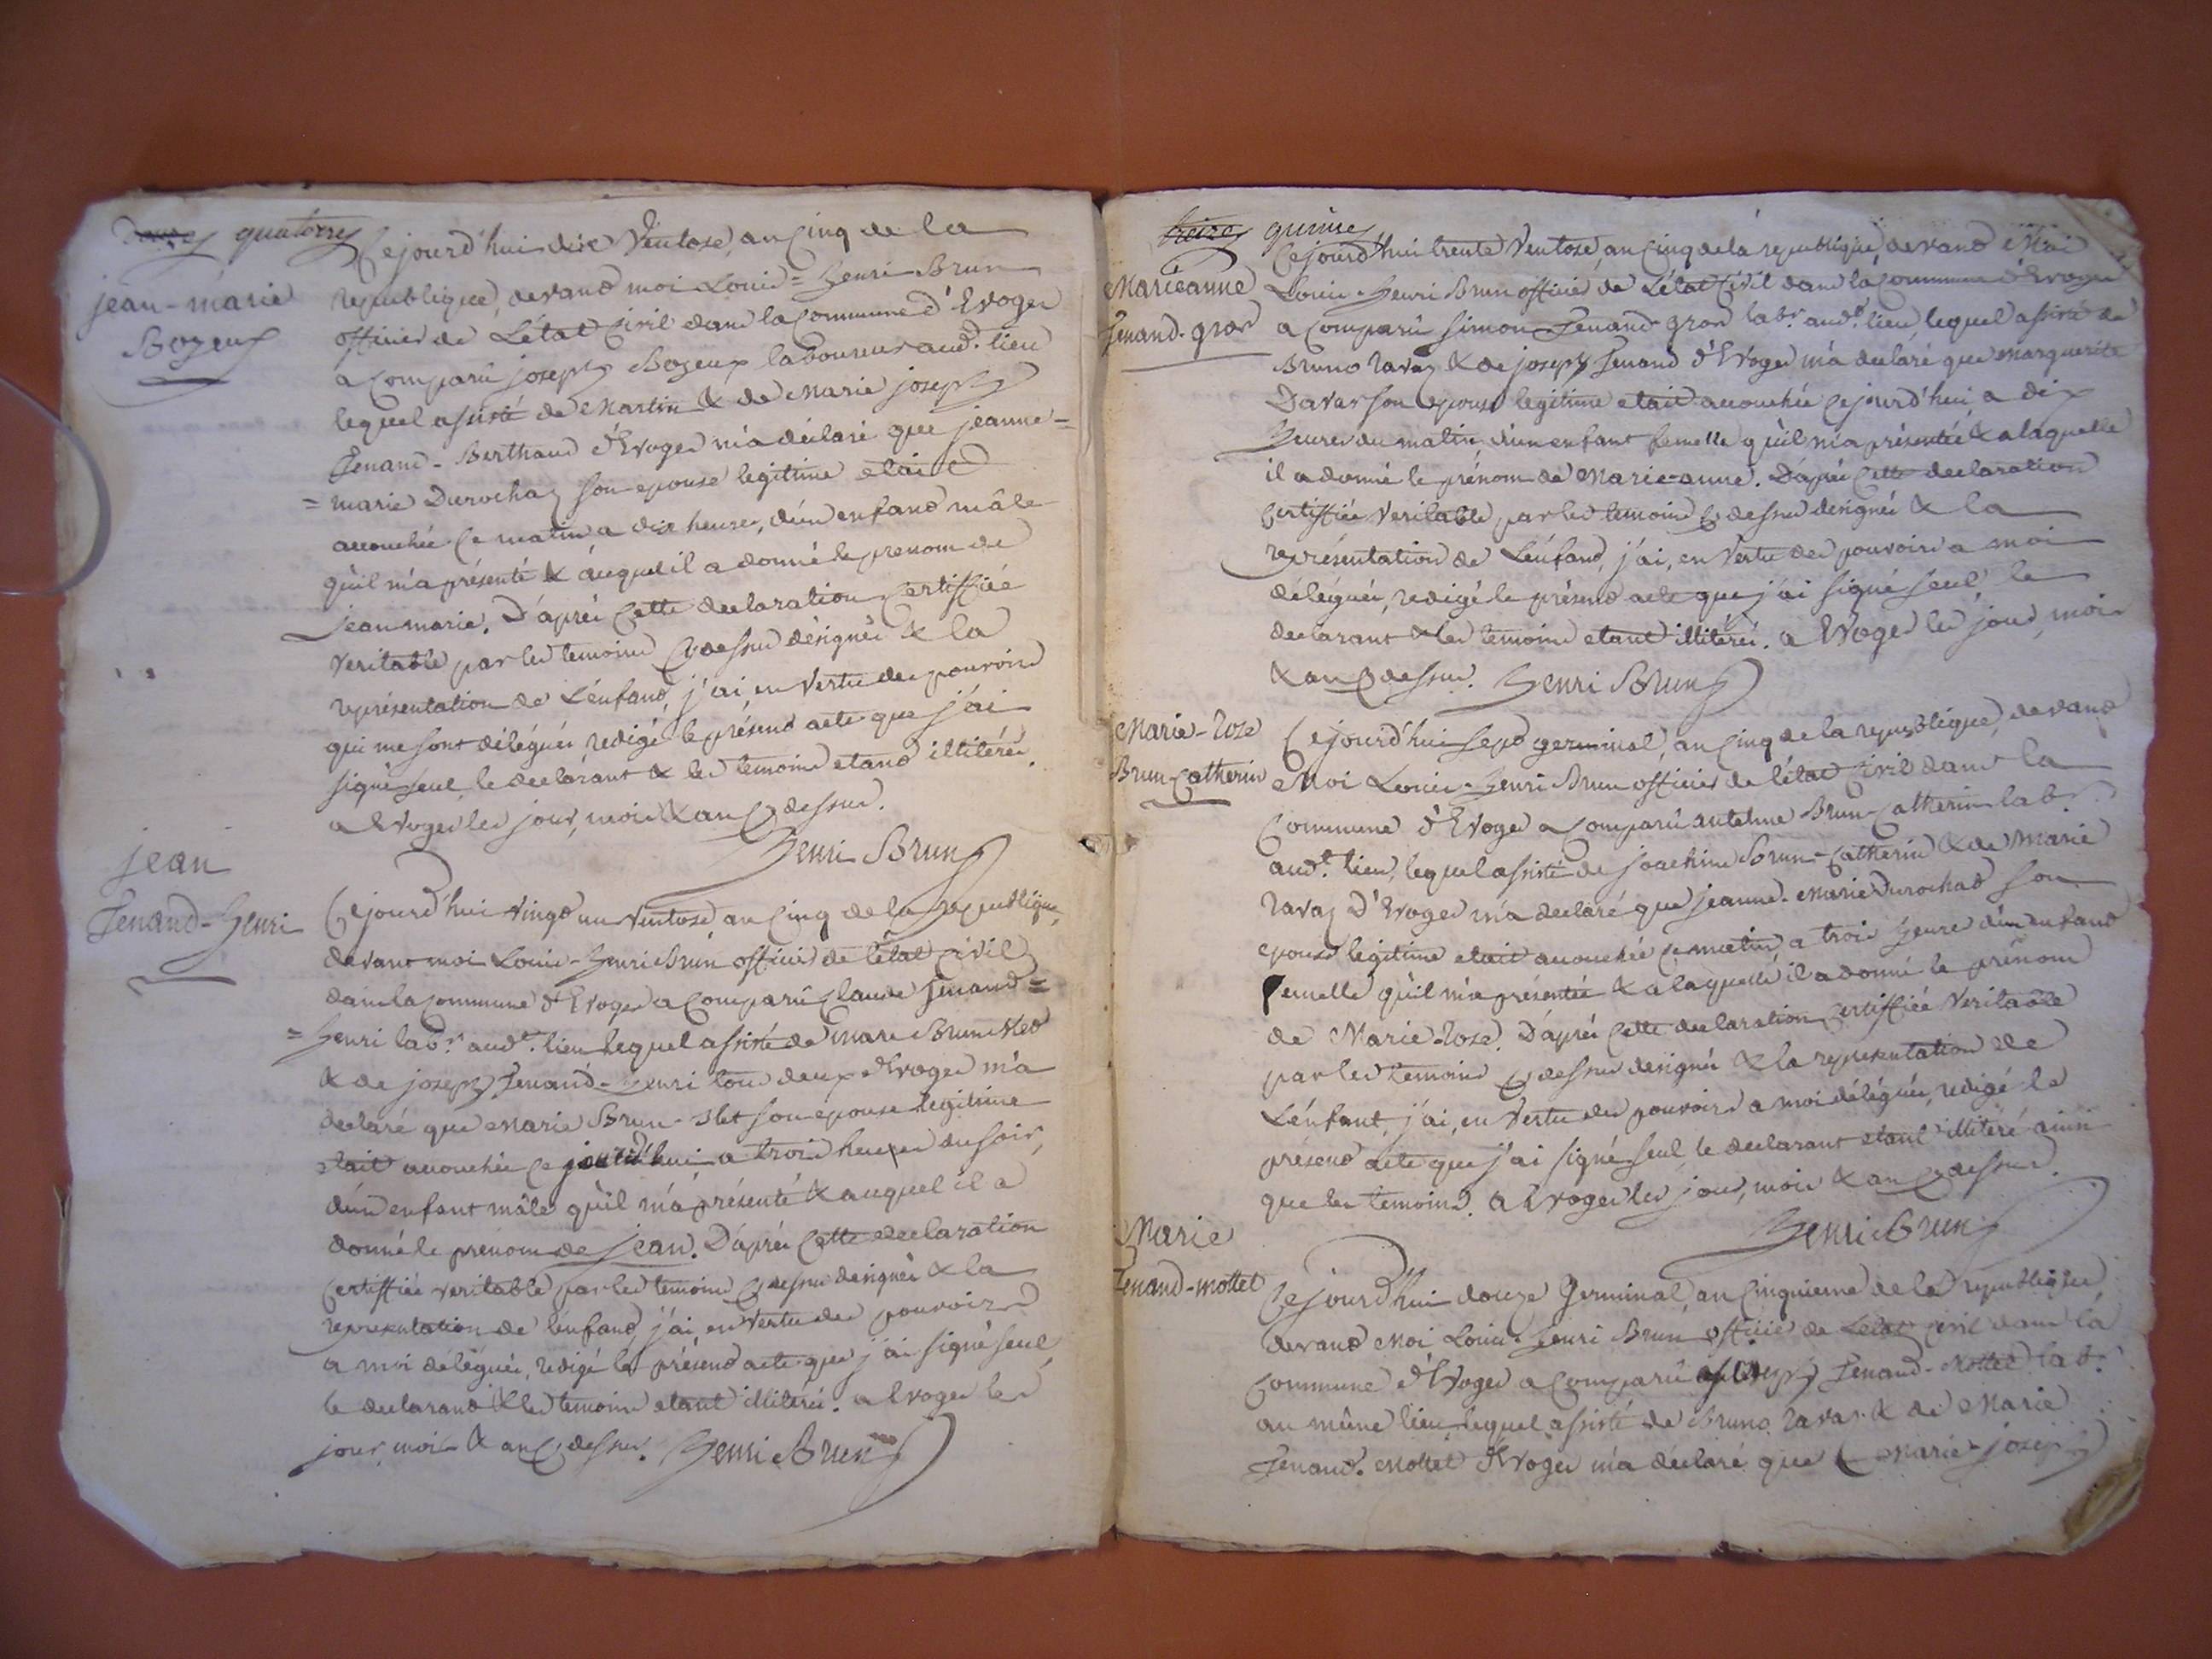 quatorze
jean-marie
Bozeux
Cejourd'hui dix Ventose, an Cinq de la
republique, devand moi Louis=henri Brun
officier de L'état Civil dans la Commune d'Evoges
a Comparû joseph Bozeux laboureur aud. lieu
lequel assisté de Martin & de Marie joseph
Tenand-Berthaud d'Evoges m'a déclaré que jeanne=
=marie Durochaz son epouse legitime etait
accouchée Ce matin a dix heures, d'un enfand mâle
qu'il m'a présenté & auquel il a donné le prenom de
jean marie. D'après Cette declaration Certiffiée
veritable par les temoins Cy dessus désignés & la
représentation de L'énfand, j'ai en Vertu des pouvoirs
qui me sont délégués, redigé le présend acte que j'ai
signé seul, le declarant & les temoins etand illitérés.
a Evoges les jour, mois & an Cy dessus.
Henri Brun
jean
Tenand-henri
Cejourd'hui vingt un Ventose, an Cinq de la republique,
devant moi Louis-henri Brun officier de l'état Civil
dans la Commune d'Evoges a Comparû Claude Tenand=
=henri labr. audt. lieu lequel assisté de marc Brun
& de joseph Tenand-henri tous deux d'Evoges m'a
déclaré que Marie Brun- son epouse legitime
etait accouchée Ce jourd'hui a trois heures du soir,
d'un enfant mâle qu'il m'a présenté & auquel il a
donné le prénom de jean. D'après Cette declaration
Certiffiée veritable par les temoins Cy dessus designés & la
representation de l'énfand, j'ai, en Vertu des pouvoirs
a moi délégués, redigé le présend acte que j'ai signé seul
le declarand & les temoins etant illitérés. a Evoges les
jour, mois & an Cy dessus. Henri Brun
treize quinze
Marieanne
Tenand-gros
Cejourd'hui trente Ventose, an Cinq de la republique, devand Moi
Louis-henri Brun officier de L'état Civil dans la Commune d'Evoges
a Comparû Simon Tenand-gros labr. audt. lieu, lequel assisté de
Bruno ravaz & de joseph Tenand d'Evoges m'a declaré que Marguerite
Davar son epouse legitime etait accouchée Cejourd'hui, a dix
heures du matin d'un enfant femelle qu'il m'a présentée & a laquelle
il a donné le prénom de Marie-anne. D'après Cette declaration
Certiffiée Veritable par les temoins Cy dessus designés & la
représentation de L'énfand, j'ai, en Vertu des pouvoirs a moi
délégués, redigé le présend acte que j'ai signé seul, le
declarant & les temoins etant illitérés. a Evoges les jour, mois
& an Cy dessus. Henri Brun
Marie-Roze
Brun Catherin
Cejourd'hui sept germinal, an Cinq de la republique, devand
Moi Louis-henri Brun officier de l'état Civil dans la
Commune d'Evoges a Comparû antelme Brun-Catherin labr.
audt. lieu, lequel assisté de joachim Brun-Catherin & de Marie
ravaz D'Evoges m'a declaré que jeanne-Marie Durochad son
epouse legitime etait accouchée Ce matin a trois heures d'un enfand
femelle qu'il m'a présentée & a laquelle il a donné le prénom
de Marie Roze. D'après Cette declaration Certiffiée Veritable
par les temoins Cy dessus designés & la representation de
L'énfant, j'ai, en Vertu des pouvoirs a moi délégués, redigé le
présend acte que j'ai signé seul, le declarant etant illitéré ainsi
que les temoins. a Evoges les jour, mois & an Cy dessus.
Henri Brun
Marie
Tenand-mottet
Cejourd'hui douze Germinal, an Cinquieme de la republique,
devand Moi Louis-henri Brun officier de Létat Civil dans la
Commune d'Evoges a Comparû joseph Tenand-Mottet labr.
au même lieu, lequel assisté de Bruno ravaz & de Marie
Tenand-Mottet d'Evoges m'a déclaré que Marie-joseph